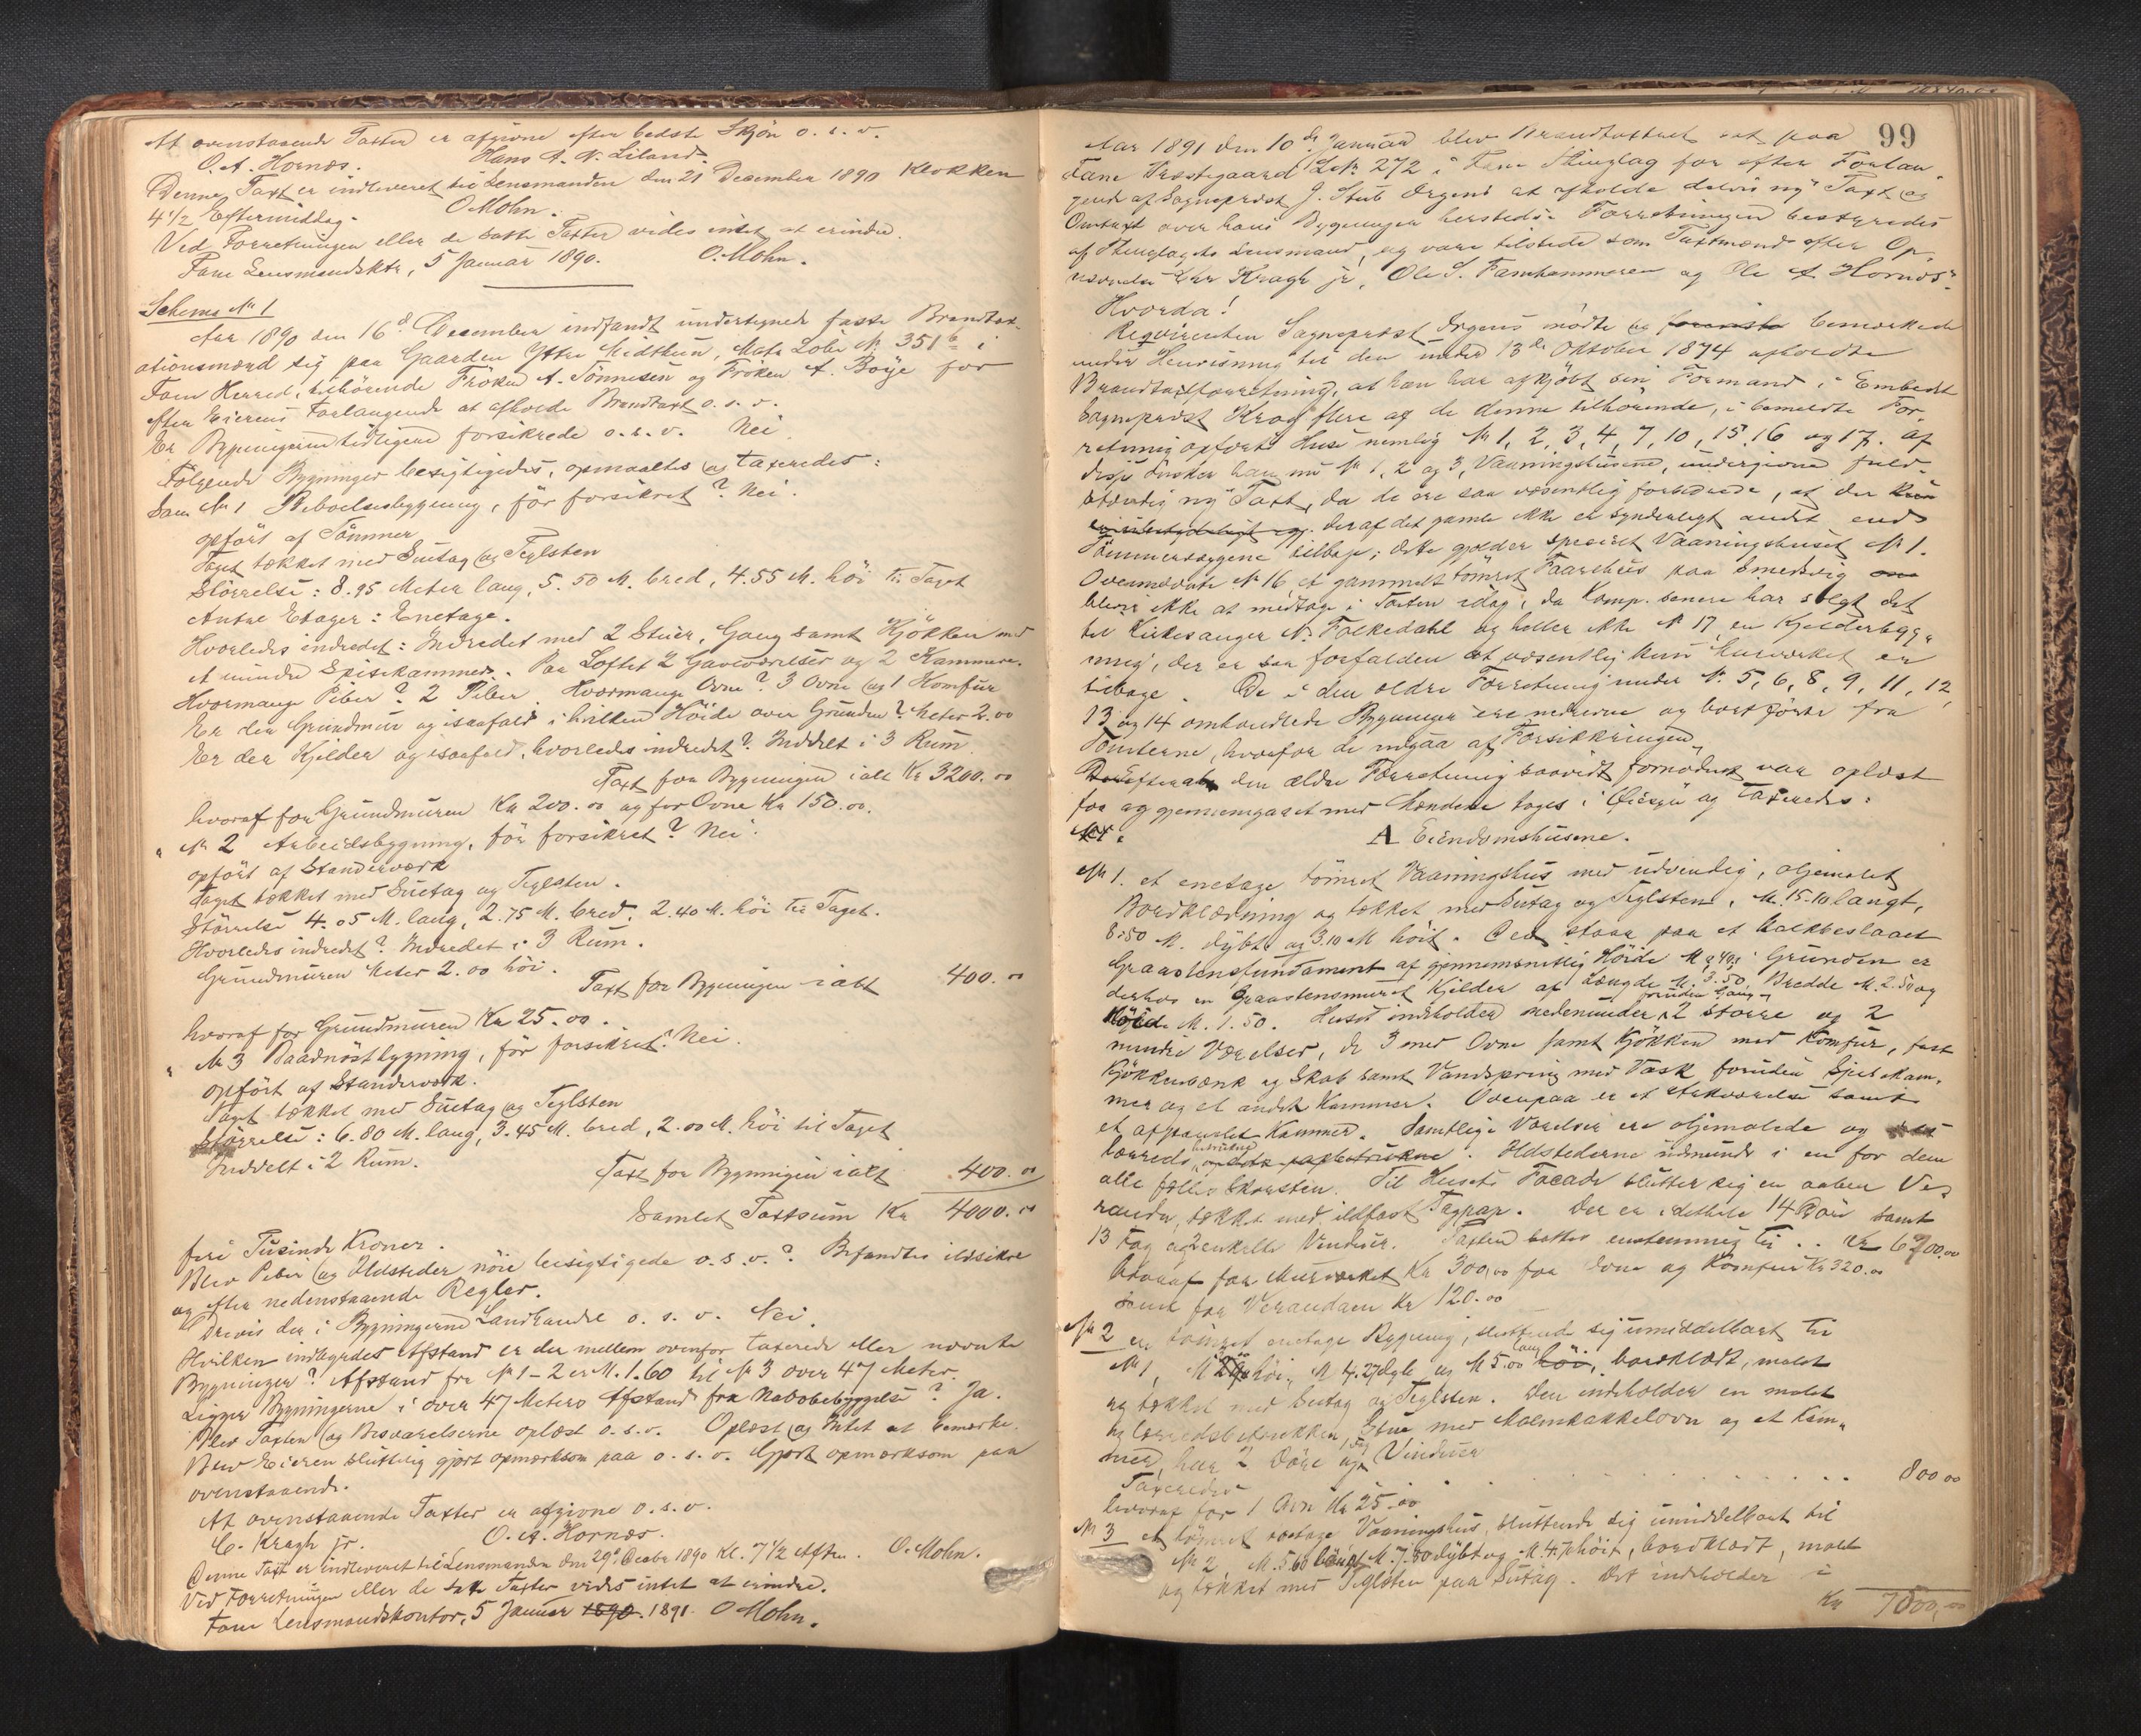 At ovenstaaende Taxter er afgivne efter bedste Skjön o. s. v.
O. A. Hornæs. Hans A. N. Liland.
Denne Taxt er indleveret til Lensmanden den 21 December 1890 Klokken
4 1/2 Eftermiddag. O Mohn.
Ved Forretningen eller de satte Taxter vides intet at erindre.
Fane Lensmandsktr, 5 Januar 1890. O. Mohn.
Schema No 1
Aar 1890 den 16de December indfandt undertegnede faste Brandtax-
ationsmænd sig paa Gaarden Ytre Midthun, Matr Løbe No 351 b i
Fane Herred, tilhörende Fröken A. Tönnesen og Fröken A. Böye for
efter Eierens Forlangende at afholde Brandtaxt o. s. v.
Er Bygningerne tidligere forsikrede o. s. v. Nei
Fölgende Bygninger besigtigedes, opmaaltes og taxeredes:
Sam No 1 Beboelsesbygning, för forsikret? Nei.
opfört af Tömmer
Taget tækket med Sutag og Teglsten
Störrelse: 8.95 Meter lang, 5.50 M. bred, 4.55 M. höi til Taget
Antal Etager: Enetage.
Hvorledes indredet: Indredet med 2 Stuer, Gang samt Kjökken med
et mindre Spisekammer. Paa Loftet 2 Gavlværelser og 2 Kammere.
Hvormange Piber? 2 Piber Hvormange Ovne? 3 Ovne og 1 Komfur
Er der Grundmur og isaafald i hvilken Höide over Grunden? Meter 2.00
Er der Kjelder og isaafald, hvorledes indredet? Inddelt i 3 Rum.
Taxt for Bygningen ialt Kr 3200.00
hvoraf for Grundmuren Kr 200.00 og for Ovne Kr 150.00.
" No 2 Arbeidsbygning, för forsikret? Nei.
opfört af Standerværk
Taget tækket med Sutag og Teglsten.
Störrelse 4.05 M. lang, 2.75 M. bred, 2.40 M. höi til Taget.
Hvorledes indredet? Indredet i 3 Rum.
Grundmuren Meter 2.00 höi.
Taxt for Bygningen ialt 400.00
hvoraf for Grundmuren Kr 25.00.
" No 3 Baadnöstbygning, för forsikret? Nei.
opfört af Standerværk.
Taget tækket med Sutag og Teglsten
Störrelse: 6.80 M. lang, 3.45 M. bred, 2.00 M. höi til Taget
Inddelt i 2 Rum.
Taxt for Bygningen ialt 400.00
Samlet Taxtsum Kr 4000.00
fire Tusinde Kroner.
Blev Piber og Ildsteder nöie besigtigede o. s. v.? Befandtes ildsikre
og efter nedenstaaende Regler.
Drives der i Bygningerne Landhandel o. s. v. Nei.
Hvilken indbyrdes Afstand er der mellem ovenfor taxerede eller nævnte
Bygninger? Afstand fra No 1 - 2 er M. 1.60 til No 3 over 47 Meter.
Ligger Bygningerne i over 47 Meters Afstand fra Nabobebyggelse? Ja.
Blev Taxten og Besvarelserne oplæst o. s. v. Oplæst og Intet at bemærke.
Blev Eieren sluttelig gjort opmærksom paa o. s. v. Gjort opmærksom paa
ovenstaaende.
At ovenstaaende Taxter er afgivne o. s. v.
C. Kragh jr. O. A. Hornæs.
Denne Taxt er indleveret til Lensmanden den 29de Decbr 1890 Kl. 7 1/2 Aften. O. Mohn.
Ved Forretningen eller de satte Taxter vides intet at erindre.
Fane Lensmandskontor, 5 Januar 1890. 1891. O Mohn.
99
Aar 1891 den 10de Januar blev Brandtaxtret sat paa
Fane Præstegaard LNo 272 i Fane Thinglag for efter Forlan-
gende af Sognepræst J. Stub Irgens at afholde delvis ny Taxt og
Omtaxt over hans Bygninger hersteds. Forretningen bestyredes
af Thinglagets Lensmand, og vare tilstede som Taxtmænd efter Op-
nævnelse Kragh jr, Ole S. Fanehammeren og Ole A. Hornæs.
Hvorda!
Reqvirenten Sognepræst Irgens mödte og bemærkede
under Henvisning til den under 13de Oktober 1874 afholdte
Brandtaxtforretning, at han har afkjöbt sin Formand i Embedet
Sognepræst Krog flere af de denne tilhörende, i bemeldte For-
retning opförte Huse nemlig No 1, 2, 3, 4, 7, 10, 15, 16 og 17. Af
disse önsker han nu No 1, 2 og 3, Vaaningshusene, undergivne fuld-
stændig ny Taxt, da de ere saa væsentlig forbedrede, at der kun
deraf det gamle ikke er synderligt andet end
Tömmervæggene tilbage; dette gjelder specielt Vaaningshuset No 1.
Ovennævnte No 16 et gammelt tömret Faarehus paa Smedsvig
bliver ikke at medtage i Taxten idag, da Komp. senere har solgt det
til Kirkesanger N. Folkedahl og heller ikke No 17, en Kjelderbygg-
ning, der er saa forfalden at væsentlig kun Murværket er
tilbage De i den ældre Forretning under No 5, 6, 8, 9, 11, 12,
13 og 14 omhandlede Bygninger ere nedrevne og bortförte fra
Tomterne, hvorfor de udgaa af Forsikkringen.
Derefter den ældre Forretning saavidt fornödent var oplæst
for og gjennemgaaet med Mændene toges i Öiesyn og taxeredes:
A Eiendomshusene.
No 1. et enetage tömret Vaaningshus med udvendig, oljemalet
Bordklædning og tækket med Sutag og Teglsten, M. 15.10 langt,
8.50 M. dybt og 3.10 M höit. Det staar paa et kalkbeslaaet
Graastensfundament af gjennemsnitlig Höide M 0,40, i Grunden er
derhos en Graastensmuret Kjelder af Længde M. 3.50, Bredde M. 2.50 og
Höide M. 1.50. Huset indeholder nedenunder foruden Gang 2 större og 2
mindre Værelser, de 3 med Ovne samt Kjökken med Komfur, fast
Kjökkenbænk og Skab samt Vandspring med Vask foruden Spisekam-
mer og et andet Kammer. Ovenpaa er et Arkværelse samt
et afpanelet Kammer. Samtlige Værelser ere oljemalede og
lærreds betrukne. Ildstederne udmunde i en for dem
alle fælles Skorsten. Til Husets Facade slutter sig en aaben Ve-
randa, tækket med ildfast Tagpap. Der er idethele 14 Döre samt
13 Fag og 2 enkelte Vinduer. Taxten sattes enstemmig til .. Kr 6700.00
hvoraf for Murværket Kr 300,00 for Ovne og Komfur Kr 320.00
samt for Verandaen Kr 120.00
No 2 en tömret enetage Bygning, sluttende sig umiddelbart til
No 1, M höi, M 4.27 dyb og M 5.00 lang, bordklædt, malet
og tækket med Sutag og Teglsten. Den indeholder en malet
og lærredsbetrukken Stue med Malmkakkelovn og et Kam-
mer, har 2 Döre og Fag Vinduer
Taxeredes . . . . . . . . 800 00
hvoraf for 1 Ovn Kr 25.00
No 3 et tömret toetages Vaaningshus, sluttende sig umiddelbart til
No 2 M. 5.60 langt, M. 7.50 dybt og M. 4.70 höit, bordklædt, malet
og tækket med Teglsten paa Sutag. Det indeholder i
Kr 7500,00